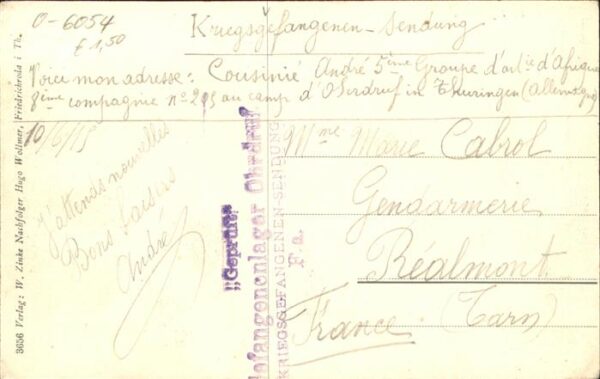 O-6054
£ 1,50
Kriegsgefangenen-Sendung
Voici mon adresse: Cousinié André 5ème Groupe d'artie d'Afrique
8ème compagnie n° 295 au camp d'Ohrdruf in Thuringen (Allemagne)
10/6/15
J'attends nouvelles
Bons baisers
André
"Geprüft"
Gefangenenlager Ohrdruf
KRIEGSGEFANGENEN-SENDUNG
F.a.
Mme Marie Cabrol
Gendarmerie
Réalmont
(Tarn)
France
3656 Verlag: W. Zinke Nachfolger Hugo Wollmer, Friedrichroda i Th.